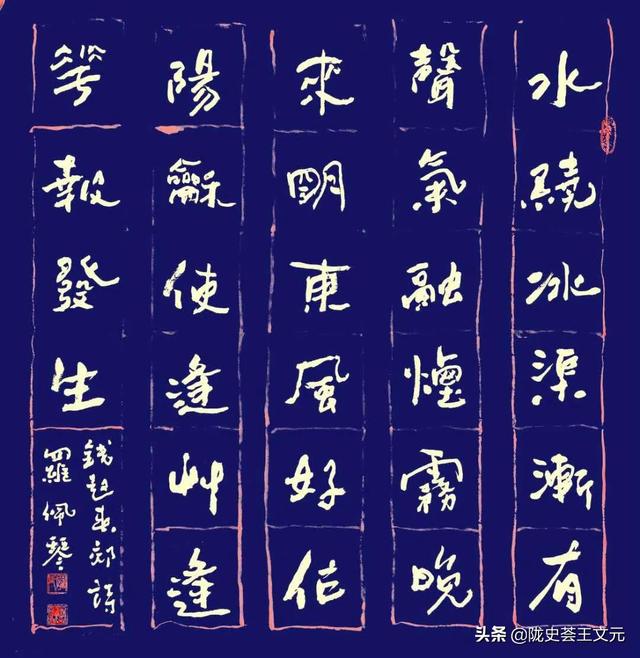 水繞冰渠漸有
聲氣融煙霧晚
來朙東風好作
陽龢使逢艸逢
花報發生
錢起春郊詩
羅佩琴
头条 @陇史荟王文元